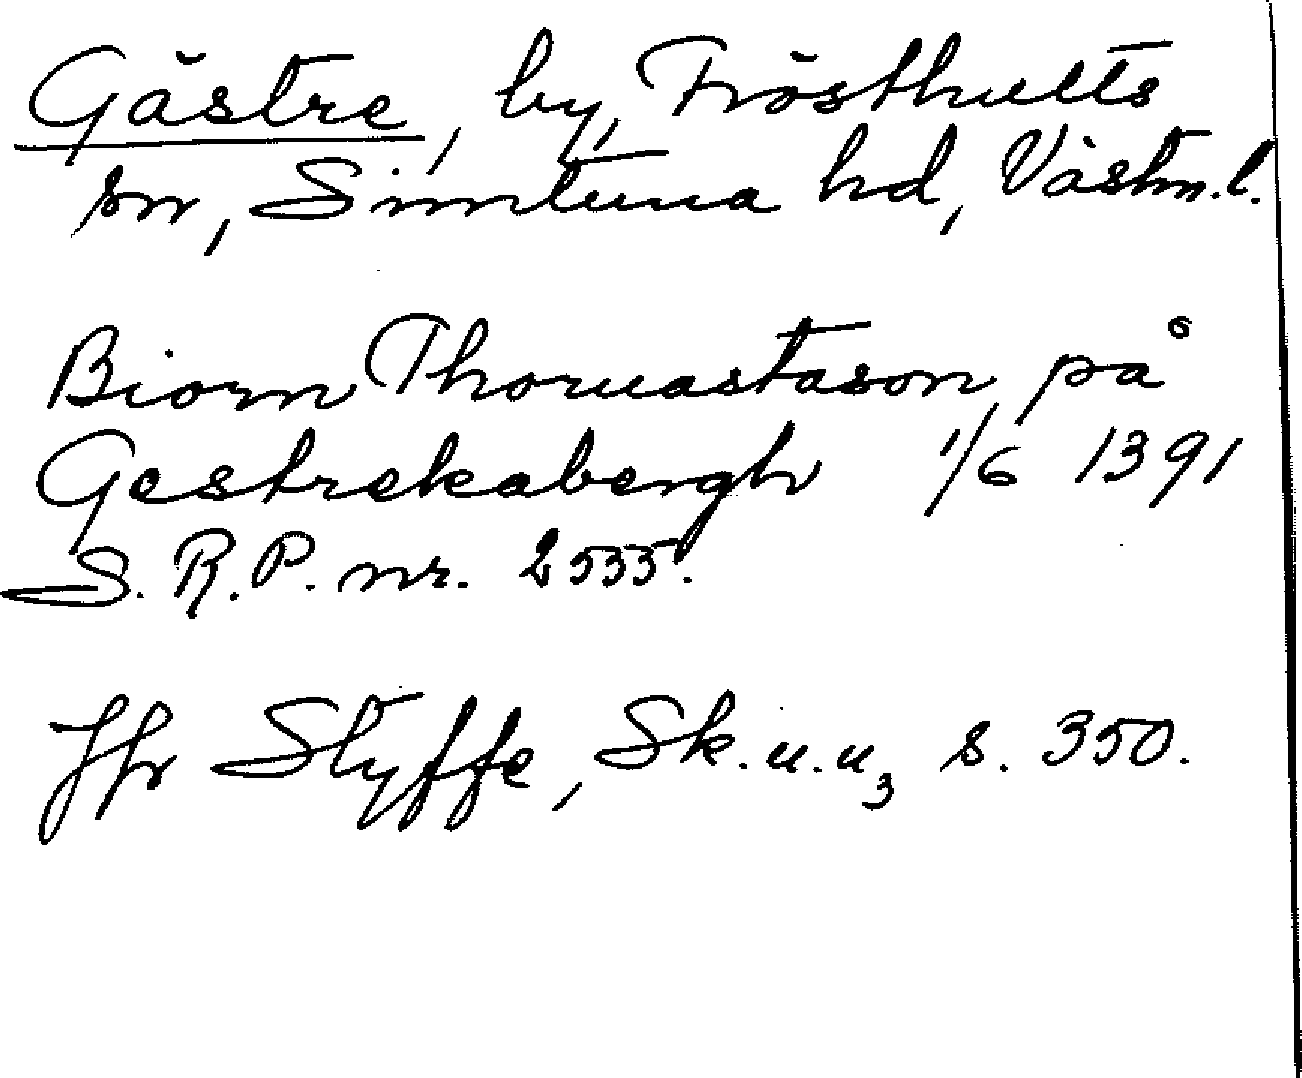 Gästre, by, Frösthults
sn, Simtuna hd, Västm.l.
Biorn Thomastason på
Gestrekabergh 1/6 1391
S.R.P. nr. 2535.
Jfr Styffe, Sk.u.u3 s. 350.